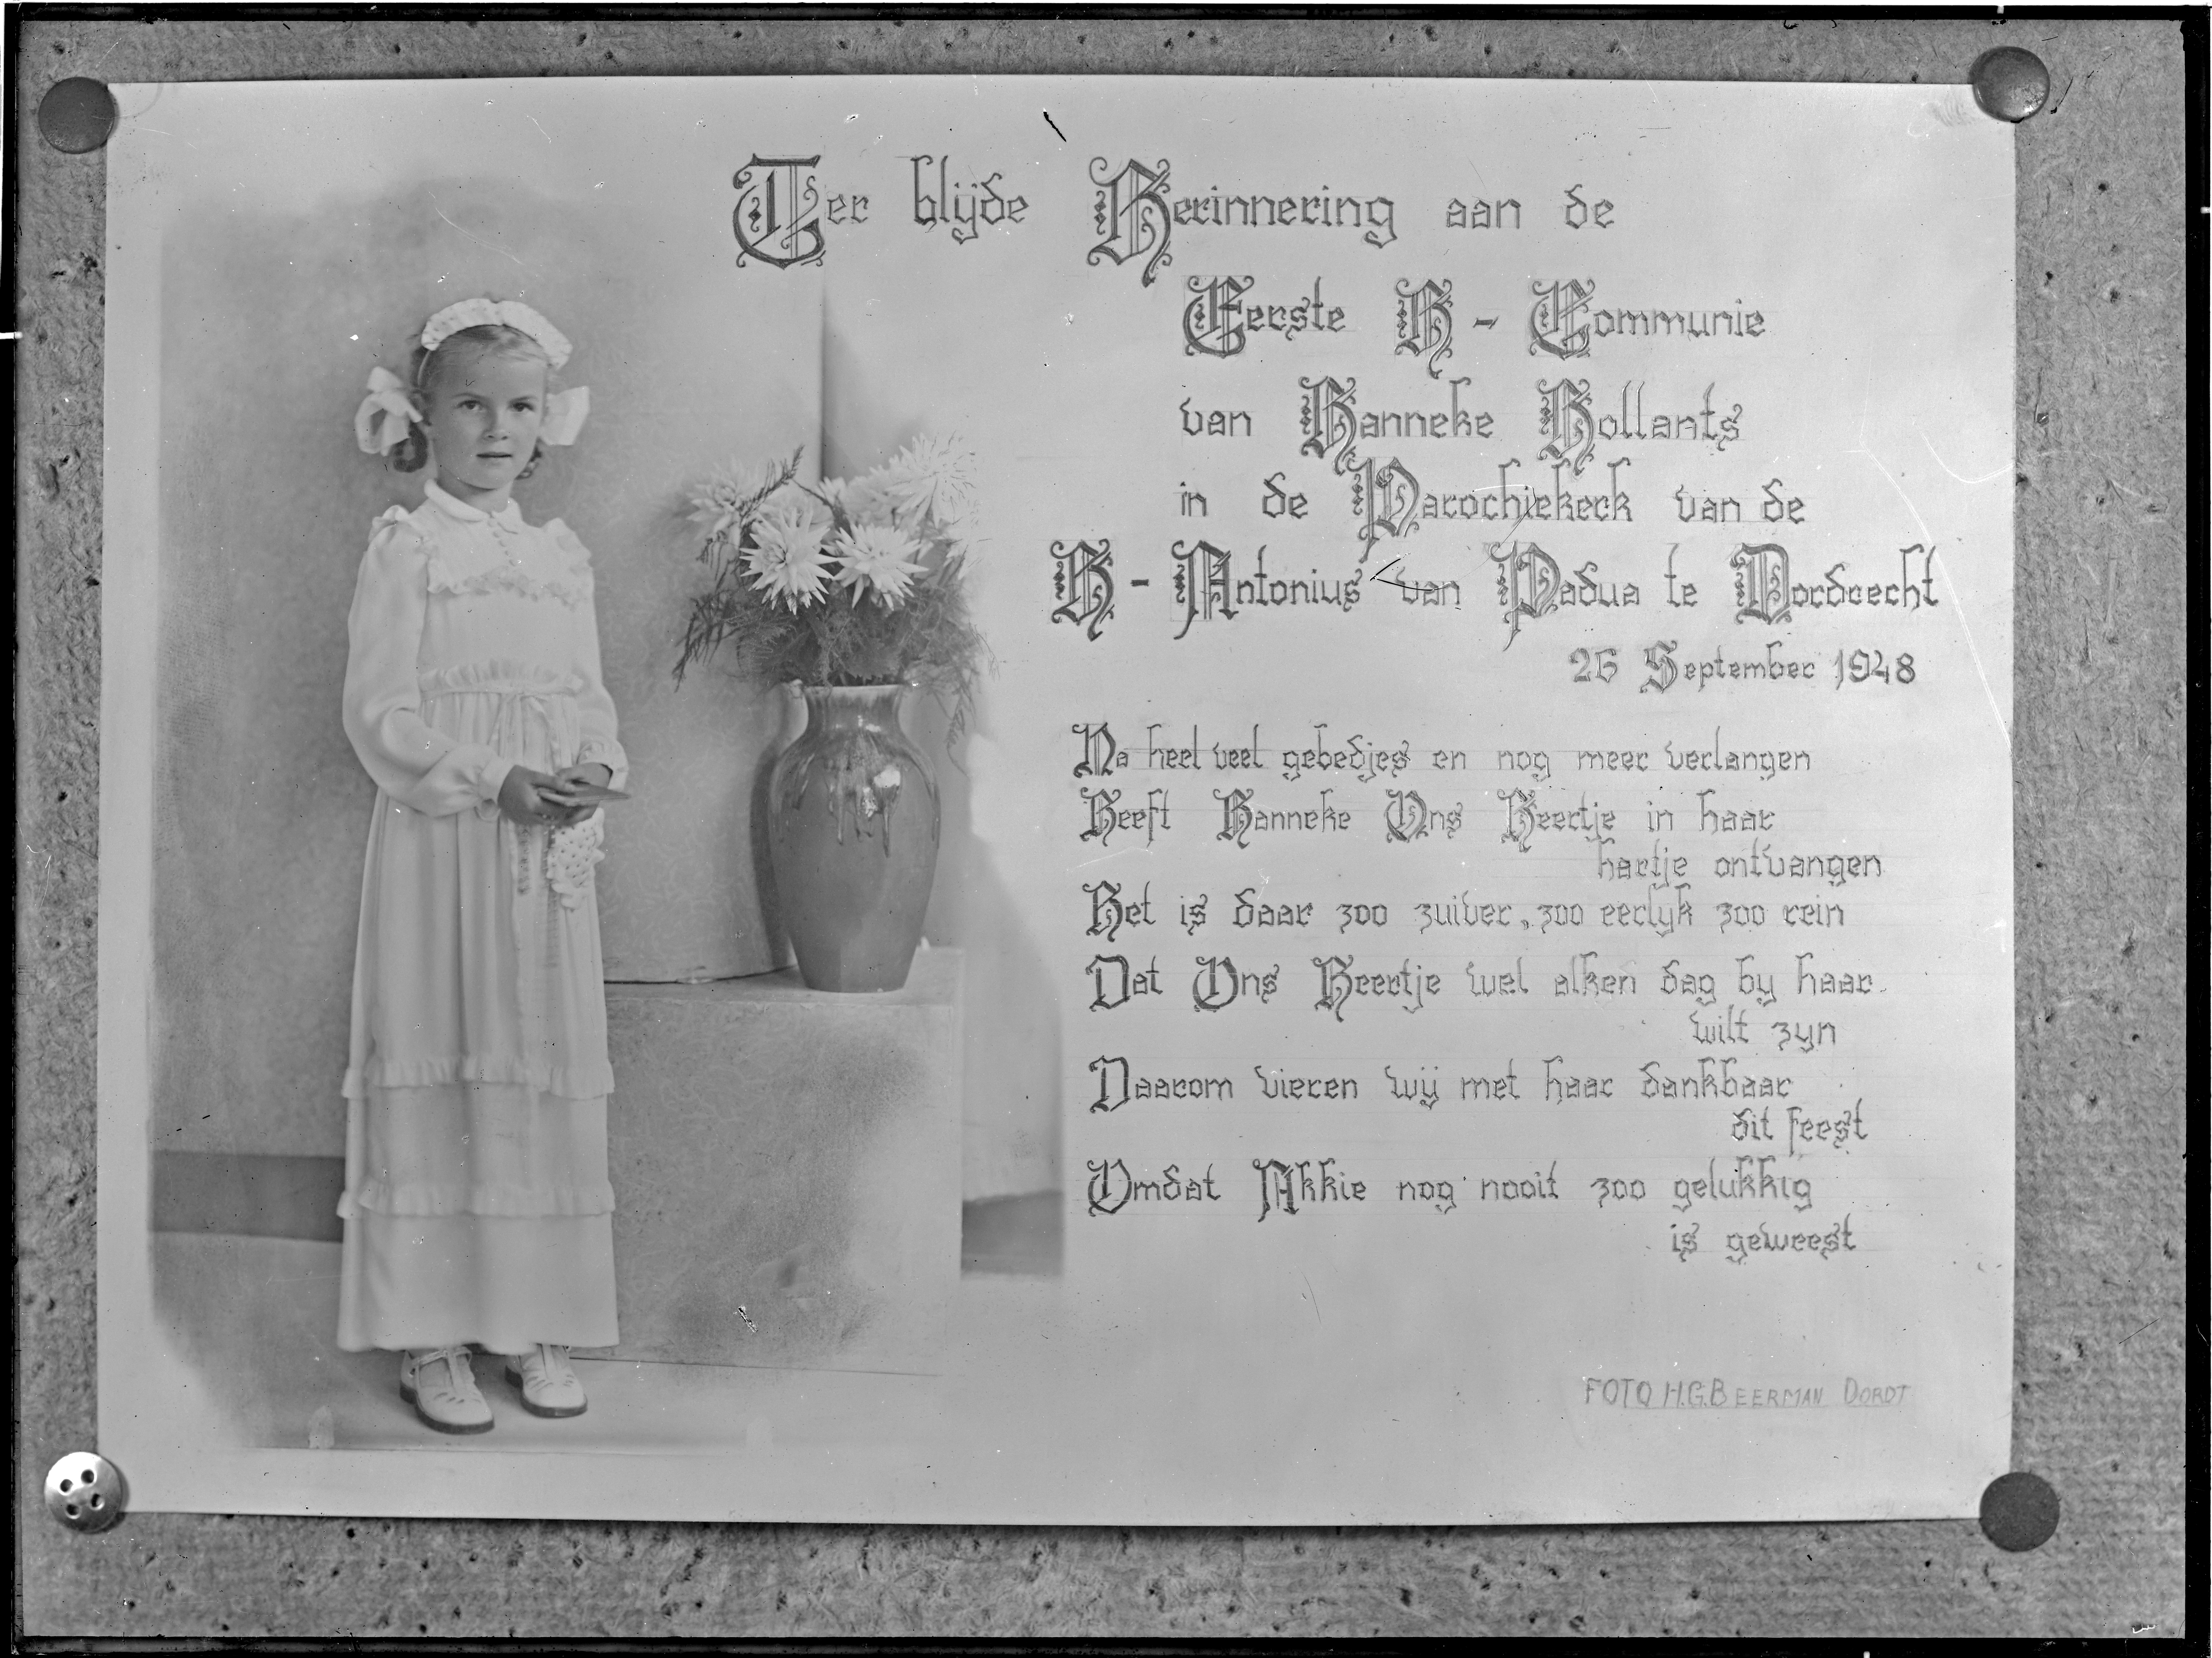 Ter blijde Herinnering aan de
Eerste H - Communie
van Hanneke Hollants
in de Parochiekerk van de
H - Antonius van Padua te Dordrecht
26 September 1948
Na heel veel gebedjes en nog meer verlangen
Heeft Hanneke Ons Heertje in haar
hartje ontvangen
Het is daar zoo zuiver, zoo eerlyk zoo rein
Dat Ons Heertje wel alken dag by haar
wilt zyn
Daarom vieren wij met haar dankbaar
dit feest
Omdat Akkie nog nooit zoo gelukkig
is geweest
FOTO H.G.BEERMAN DORDT